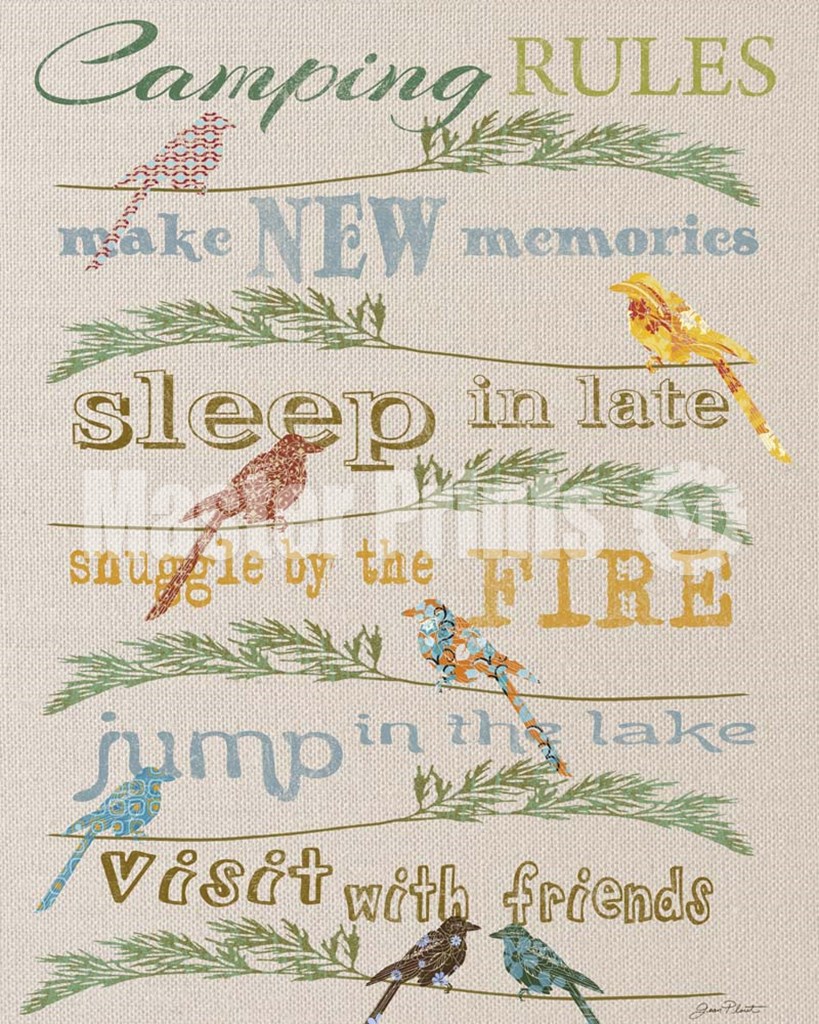 Camping RULES
make NEW memories
sleep in late
Master Prints
snuggle by the FIRE
jump in the lake
visit with friends
Jean Plout